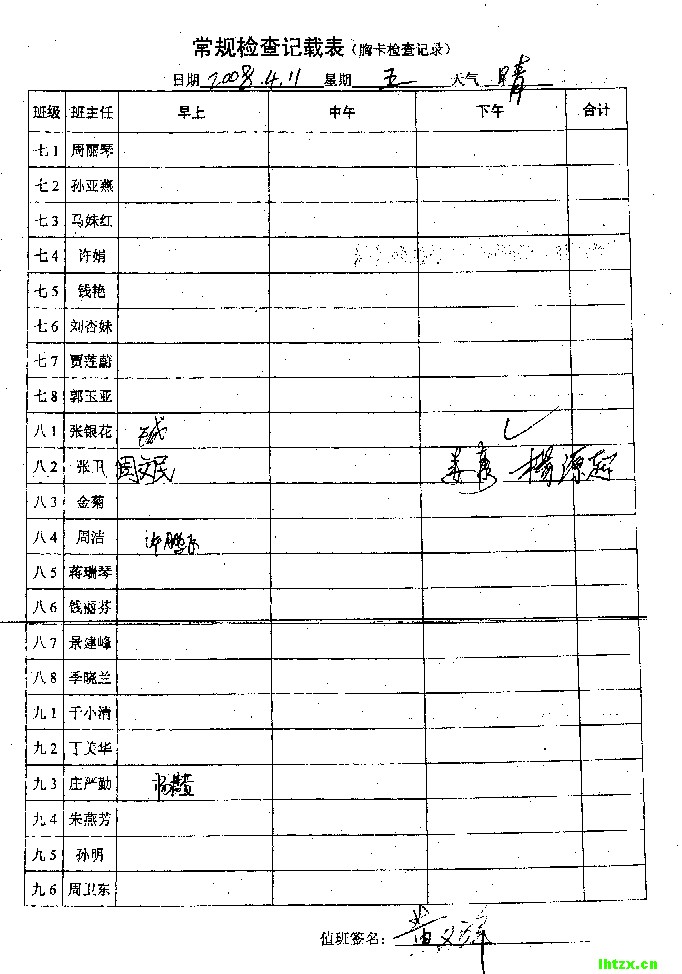 常规检查记载表（胸卡检查记录）
日期 2008.4.11 星期 五 天气 晴
班级 班主任 早上 中午 下午 合计
七1 周丽琴
七2 孙亚燕
七3 马妹红
七4 许娟
七5 钱艳
七6 刘杏妹
七7 贾莲蔚
七8 郭玉亚
八1 张银花
八2 张卫 周文民 杨源
八3 金菊
八4 周洁
八5 蒋瑞琴
八6 钱丽芬
八7 景建峰
八8 季晓兰
九1 于小清
九2 丁美华
九3 庄严勤
九4 朱燕芳
九5 孙明
九6 周卫东
值班签名：
lhtzx.cn